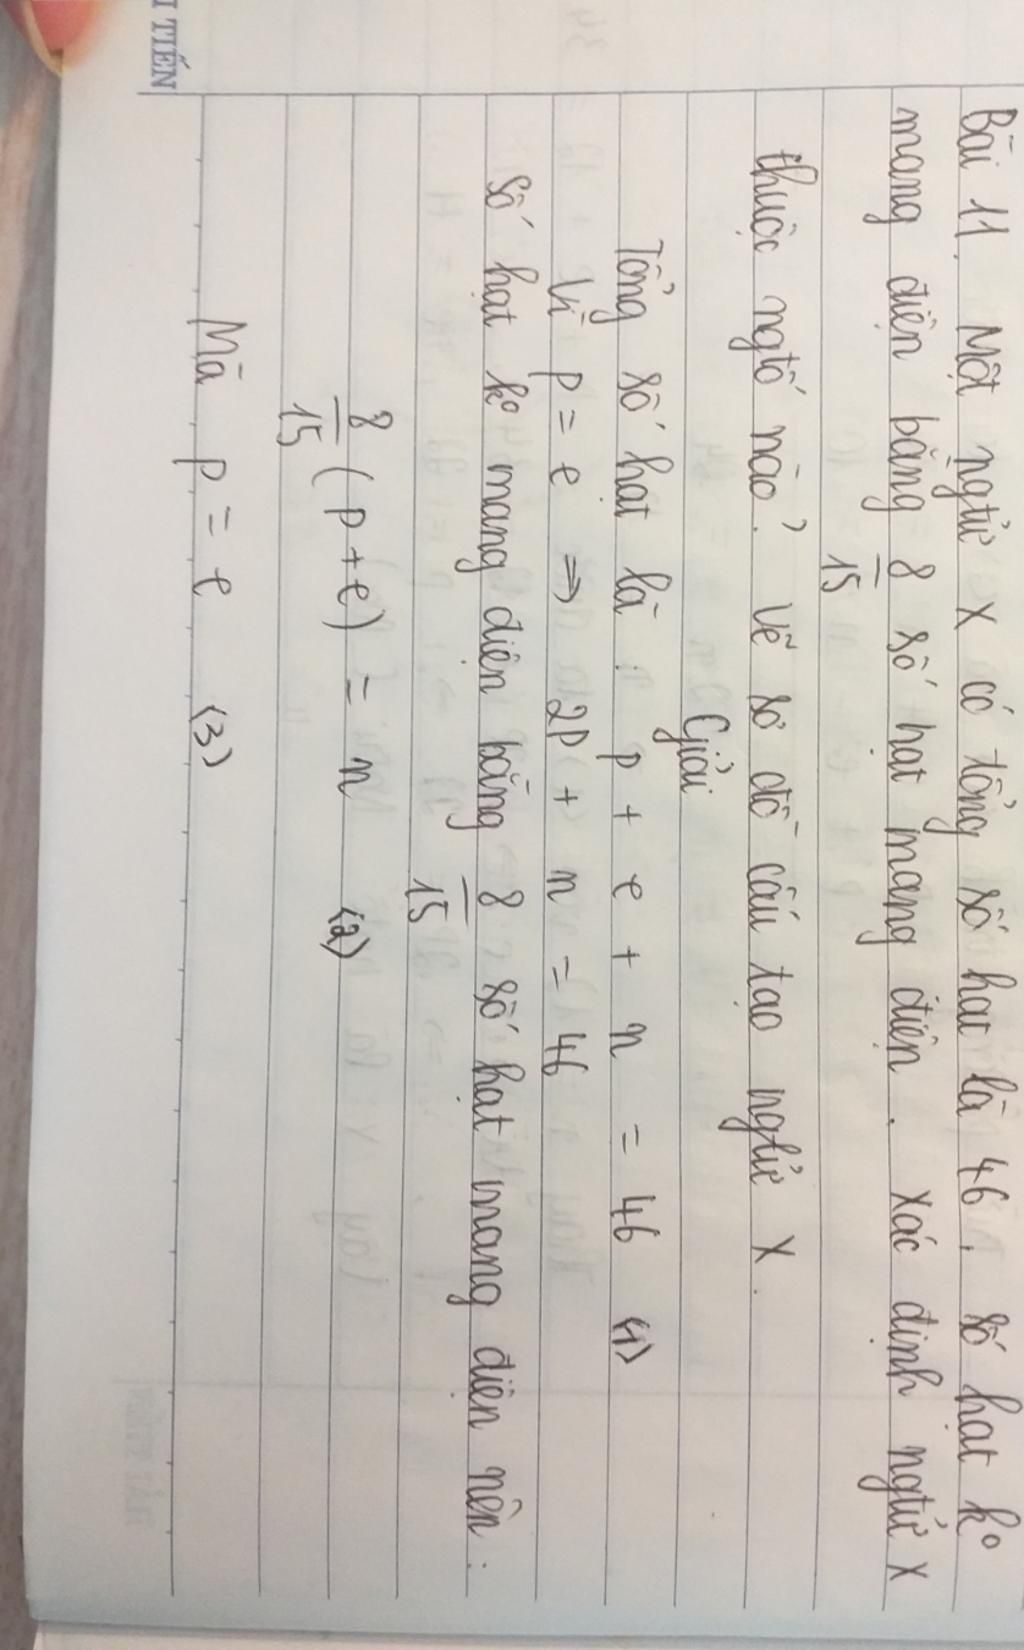 Bài 11. Một ngtử X có tổng số hạt là 46, số hạt ko
mang điện bằng 8/15 số hạt mang điện. Xác định ngtử X
thuộc ngtố nào? Vẽ sơ đồ cấu tạo ngtử X.
Giải
Tổng số hạt là: p + e + n = 46 (1)
Vì p = e => 2p + n = 46
Số hạt ko mang điện bằng 8/15 số hạt mang điện nên:
8/15 (p+e) = n (2)
Mà p = e (3)
I TIẾN